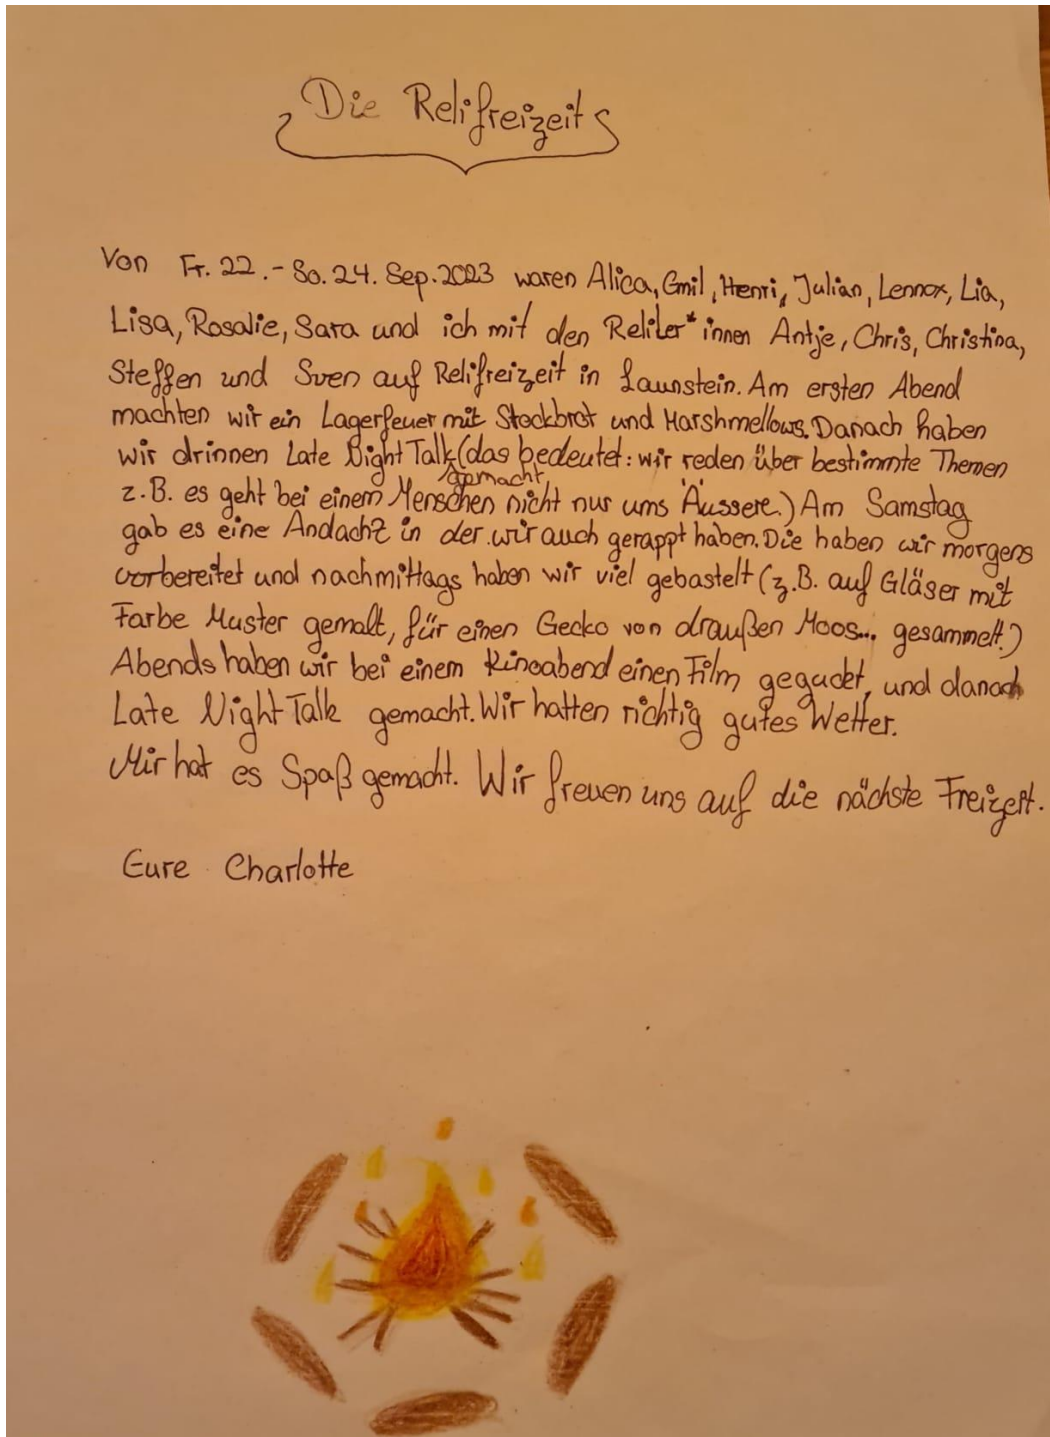 Die Relifreizeit
Von Fr. 22.- So. 24. Sep. 2023 waren Alica, Emil, Henri, Julian, Lennox, Lia,
Lisa, Rosalie, Sara und ich mit den Reliler*innen Antje, Chris, Christina,
Steffen und Sven auf Relifreizeit in Launstein. Am ersten Abend
machten wir ein Lagerfeuer mit Stockbrot und Marshmellows. Danach haben
wir drinnen Late Night Talk (das bedeutet: wir reden über bestimmte Themen
gemacht
z.B. es geht bei einem Menschen nicht nur ums Äussere.) Am Samstag
gab es eine Andacht in der wir auch gerappt haben. Die haben wir morgens
vorbereitet und nachmittags haben wir viel gebastelt (z.B. auf Gläser mit
Farbe Muster gemalt, für einen Gecko von draußen Moos... gesammelt.)
Abends haben wir bei einem Kinoabend einen Film geguckt, und danach
Late Night Talk gemacht. Wir hatten richtig gutes Wetter.
Mir hat es Spaß gemacht. Wir freuen uns auf die nächste Freizeit.
Eure Charlotte